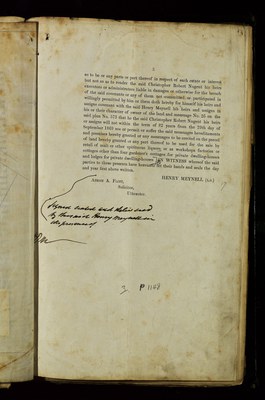 4
so to be or any parts or part thereof in respect of such owner or interest
but not so as to render the said Christopher Robert Nugent his heirs
executors or administrators liable in damages or otherwise for the breach
of the said covenants or any of them not committed or participated in
willingly permitted by him or them doth hereby for himself his heirs and
assigns covenant with the said Henry Meynell his heirs and assigns in
his or their character of owner of the land and messuage No. 25 on the
said plan No. 173 that he the said Christopher Robert Nugent his heirs
or assigns will not within the term of 22 years from the 29th day of
September 1883 use or permit or suffer the said messuages hereditaments
and premises hereby granted or any messuages to be erected on the parcel
of land hereby granted or any part thereof to be used for the sale by
retail of malt or other spirituous liquors, or as workshops factories or
cottages other than four gardeners cottages for private dwellinghouses
and lodges for private dwellinghouses IN WITNESS whereof the said
parties to these presents have hereunto set their hands and seals the day
and year first above written.
HENRY MEYNELL (L.S.)
Solicitor,
Uttoxeter.
Signed sealed and delivered
by the said Henry Meynell in
the presence of